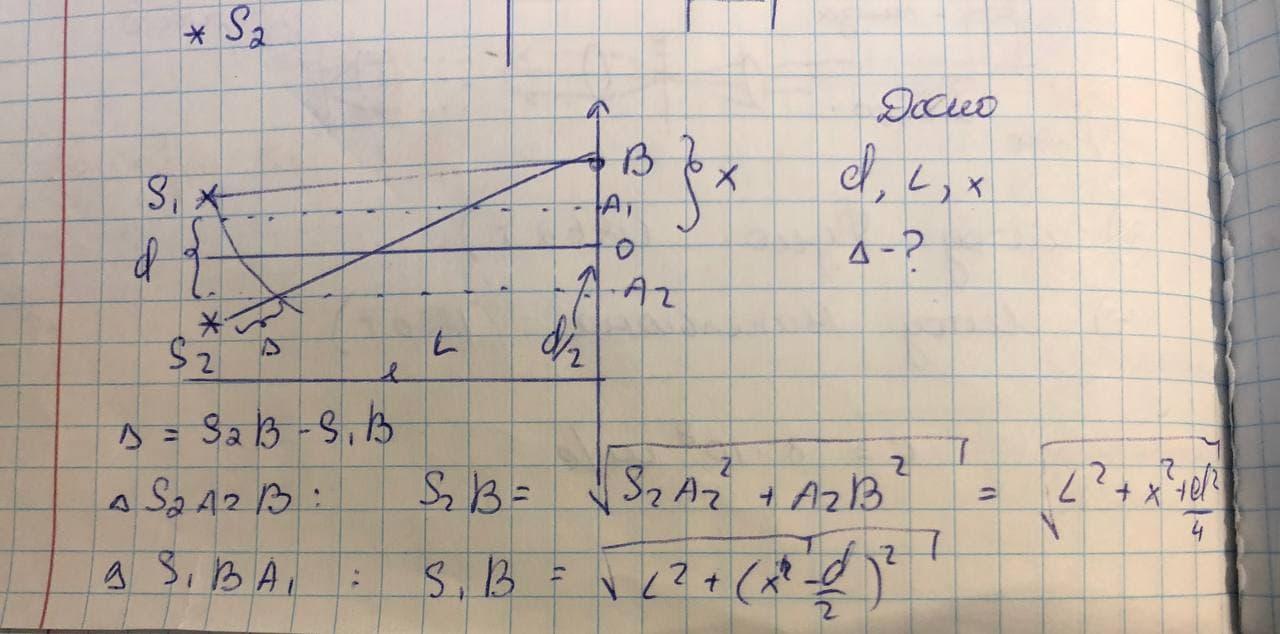 * S₂
Дано
B } x
d, L, x
S₁
A₁
d
O
Δ - ?
A₂
S₂
Δ
L
d/2
l
Δ = S₂B - S₁B
Δ S₂A₂B : S₂B = √(S₂A₂² + A₂B²) = √(L² + x² + d²/4)
Δ S₁BA₁ : S₁B = √(L² + (x - d/2)²)